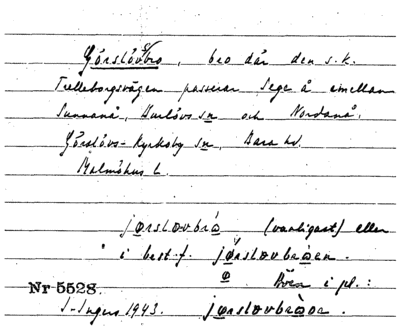 Görslövbro, bro där den s.k.
Trelleborgsvägen passerar Sege å emellan
Sunnanå, Burlövs sn och Nordanå,
Görslövs-Kyrkoby sn, Bara hd.
Malmöhus l.
jørslovbrò (vanligast) eller
i best. f. jørslovbròen.
Även i pl.:
Nr 5528.
1943. jørslovbròor.